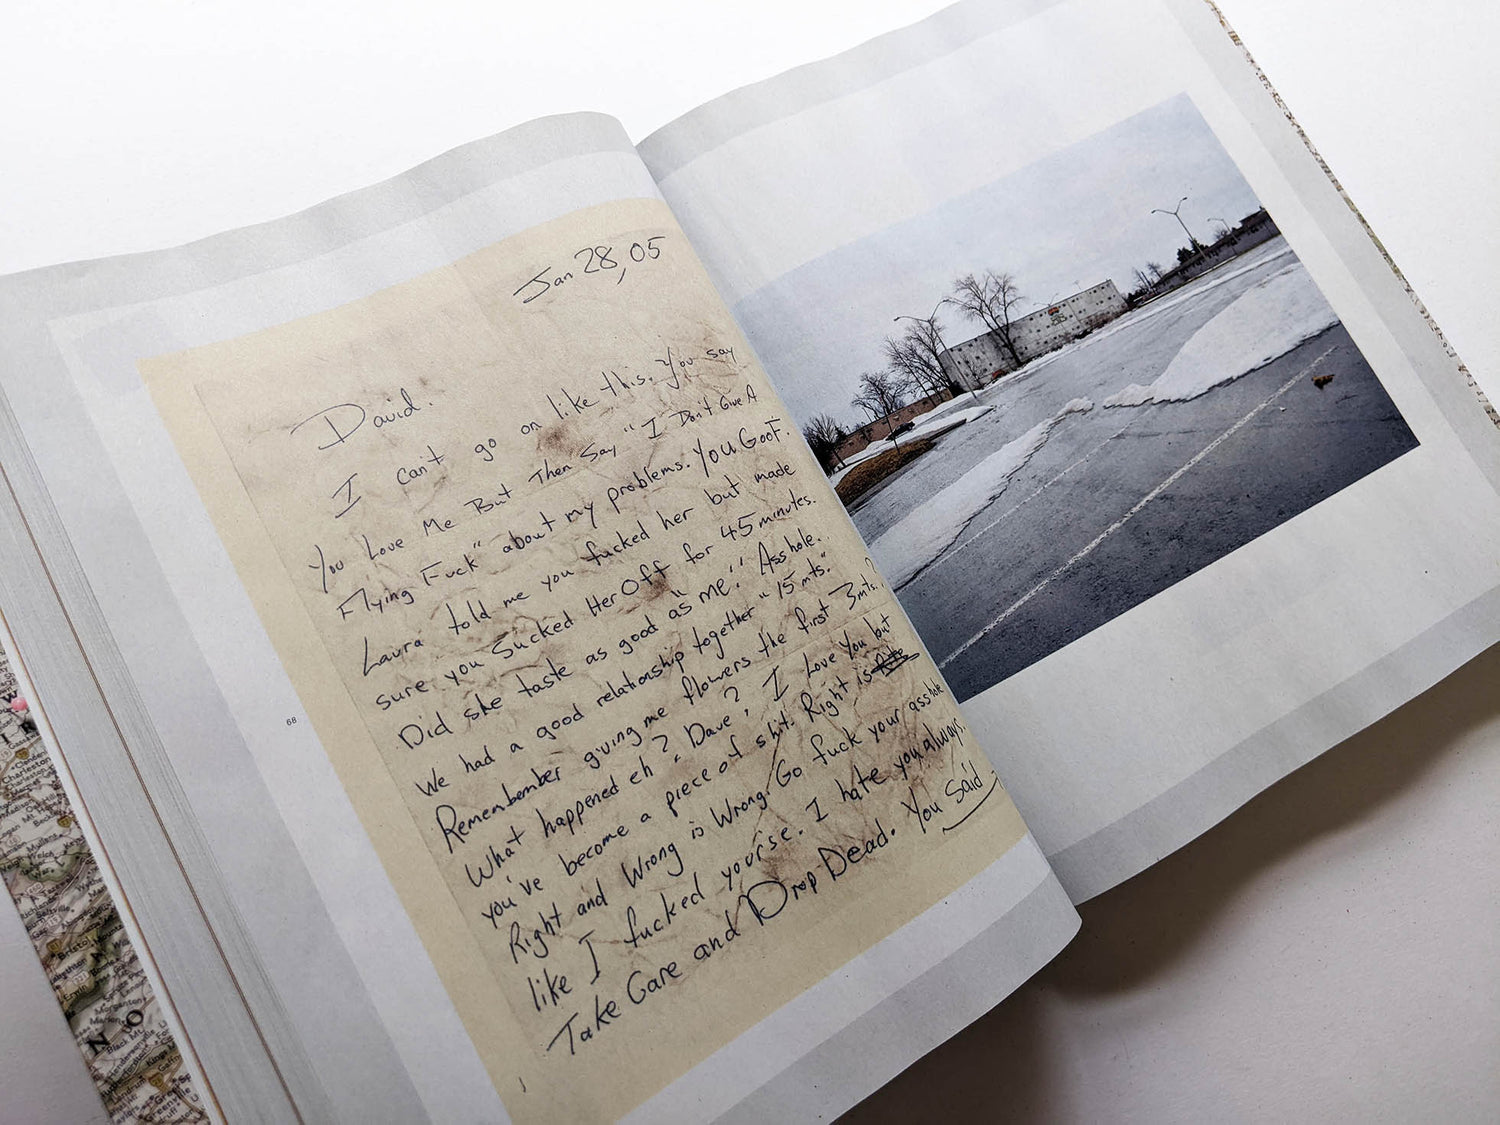 Jan 28, 05
David.
I can't go on like this. You say
You Love Me But Then Say "I Don't Give A
Flying Fuck" about my problems. You GooF.
Laura told me you fucked her but made
sure you Sucked Her Off for 45 minutes.
Did she taste as good "as me." Asshole.
We had a good relationship together "15 mts."
Remember giving me flowers the first 3mts.?
What happened eh? Dave? I Love You but
you've become a piece of shit. Right is
Right and Wrong is Wrong. Go fuck your asshole
like I fucked yourse. I hate you always.
Take Care and Drop Dead. You said
68
Bristol
Morganton
Marion
Black Mt.
Greenville
N O